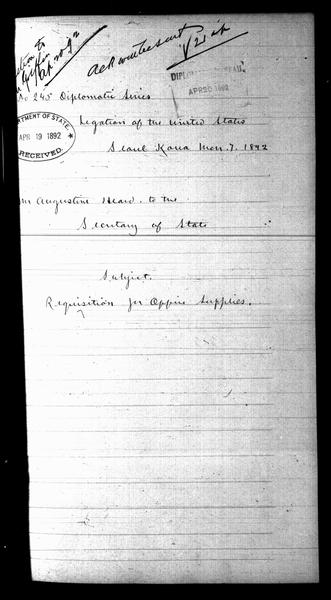 Ap 20 92
Ack
DIPLOMATIC BUREAU,
APR 20 1892
No 245 Diplomatic Series
Legation of the United States
DEPARTMENT OF STATE,
APR 19 1892
RECEIVED.
Seoul Korea Mch. 7. 1892
Mr Augustine Heard. to the
Secretary of State
Subject.
Requisition for Office Supplies.